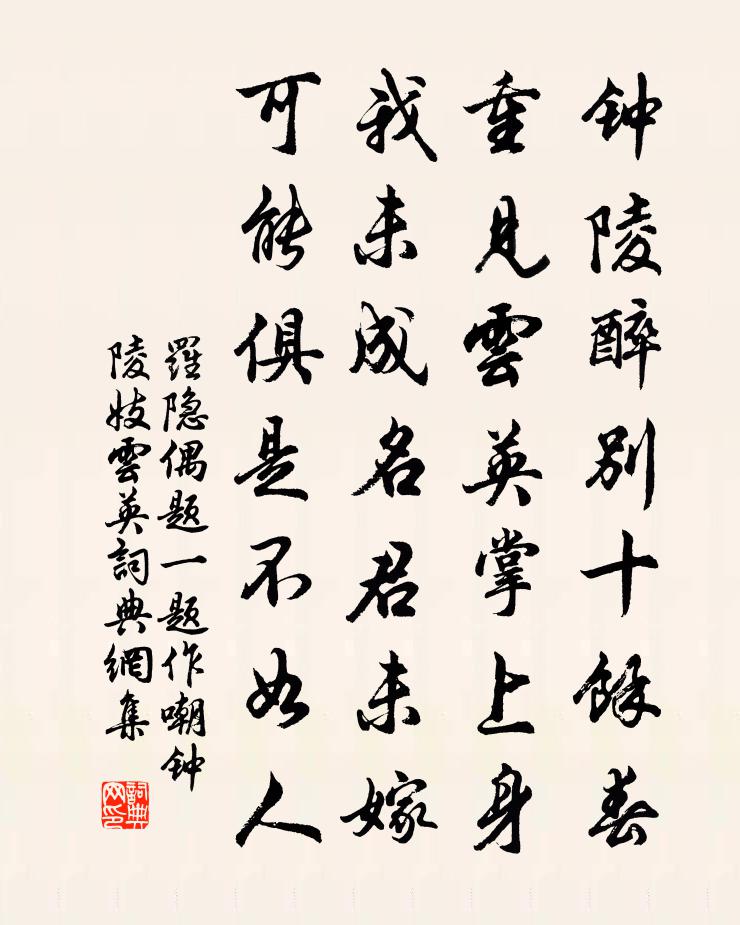 钟陵醉别十餘春
重見雲英掌上身
我未成名君未嫁
可能俱是不如人
羅隐偶题一题作嘲钟
陵妓雲英詞典網集
詞典
网印